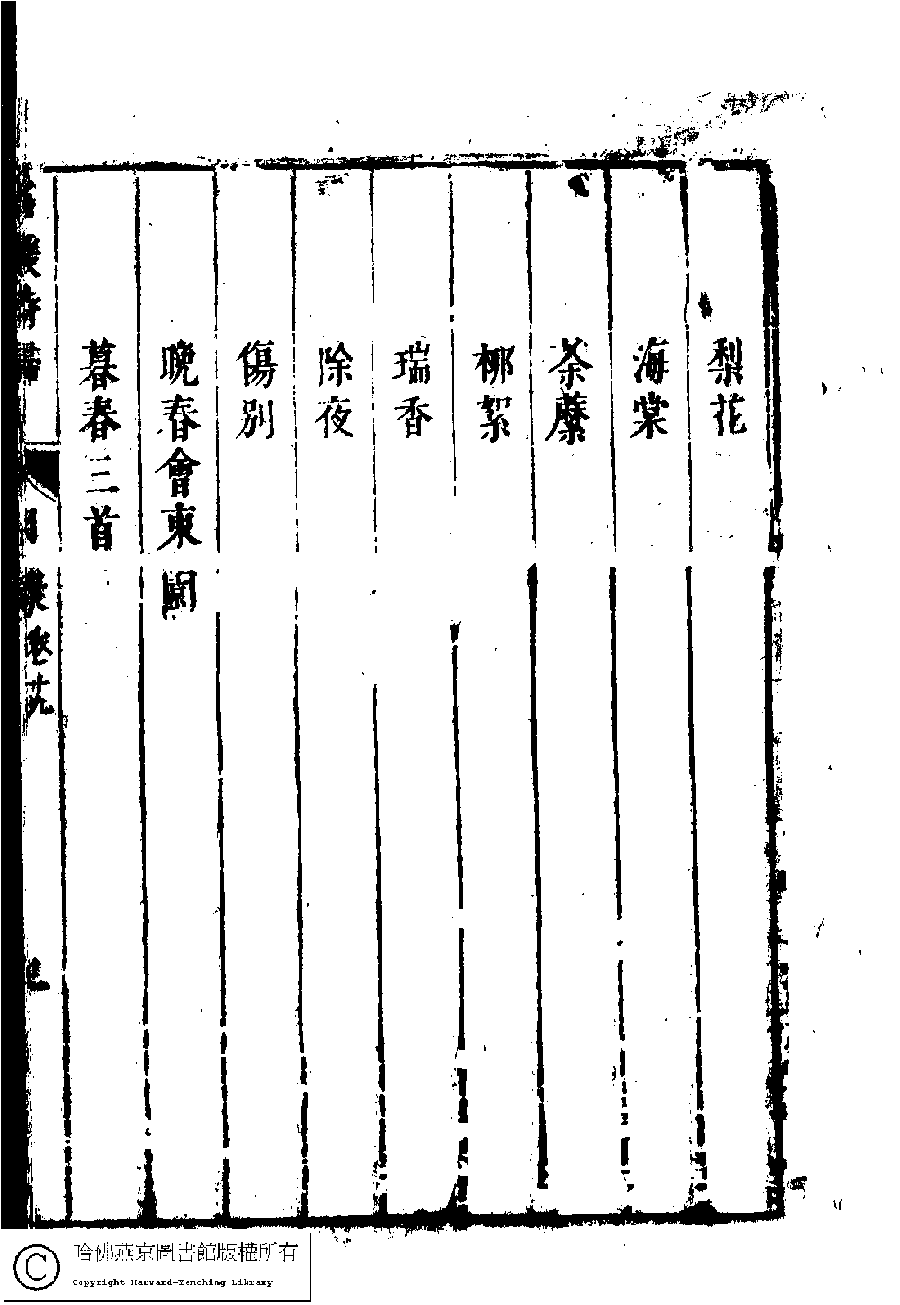 梨花
海棠
荼蘼
柳絮
瑞香
除夜
傷別
晚春會東園
暮春三首
目錄卷十九
哈佛燕京圖書館版權所有
Copyright Harvard-Yenching Library